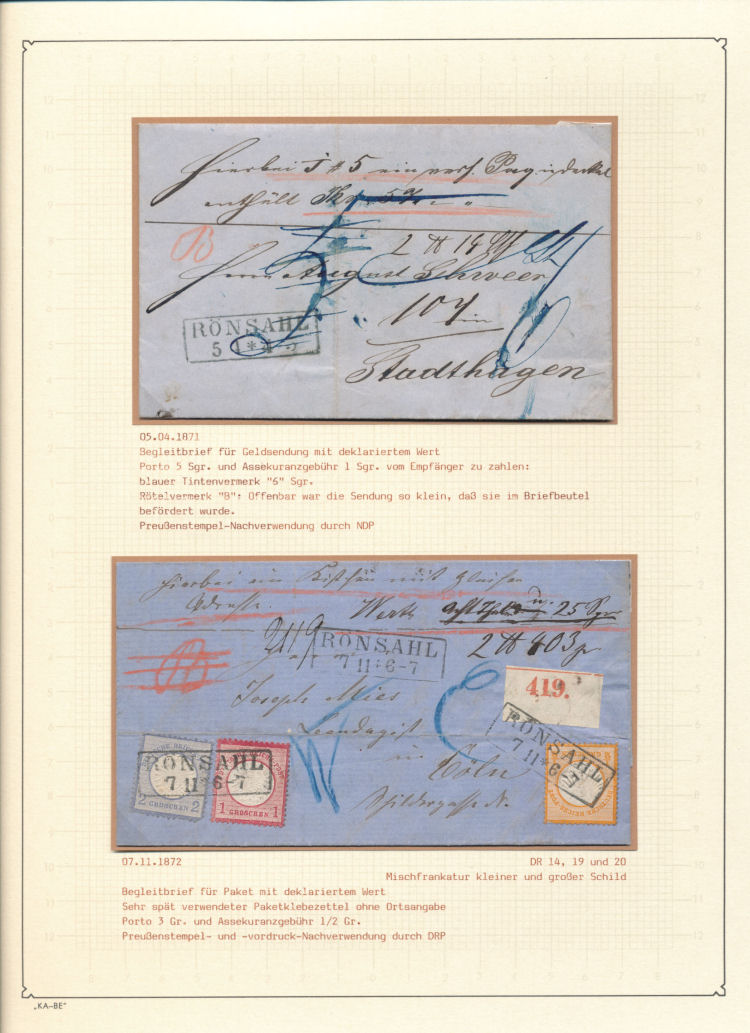 Hierbei ein
enthält
B
2 ℔
Herrn August Schweer
in
Stadthagen
RÖNSAHL
5 4 * 4-5
05.04.1871
Begleitbrief für Geldsendung mit deklariertem Wert
Porto 5 Sgr. und Assekuranzgebühr 1 Sgr. vom Empfänger zu zahlen:
blauer Tintenvermerk "6" Sgr.
Rötelvermerk "B": Offenbar war die Sendung so klein, daß sie im Briefbeutel
befördert wurde.
Preußenstempel-Nachverwendung durch NDP
Hierbei ein Kistchen mit gleicher
Adresse. Werth 25 Sgr
RÖNSAHL
7 11 * 6-7
419.
Joseph Mies
in Cöln
Schildergasse
RÖNSAHL
7 11 * 6-7
RÖNSAHL
7 11 * 6-7
2 GROSCHEN 2
1 GROSCHEN 1
07.11.1872
DR 14, 19 und 20
Mischfrankatur kleiner und großer Schild
Begleitbrief für Paket mit deklariertem Wert
Sehr spät verwendeter Paketklebezettel ohne Ortsangabe
Porto 3 Gr. und Assekuranzgebühr 1/2 Gr.
Preußenstempel- und -vordruck-Nachverwendung durch DRP
„KA-BE"